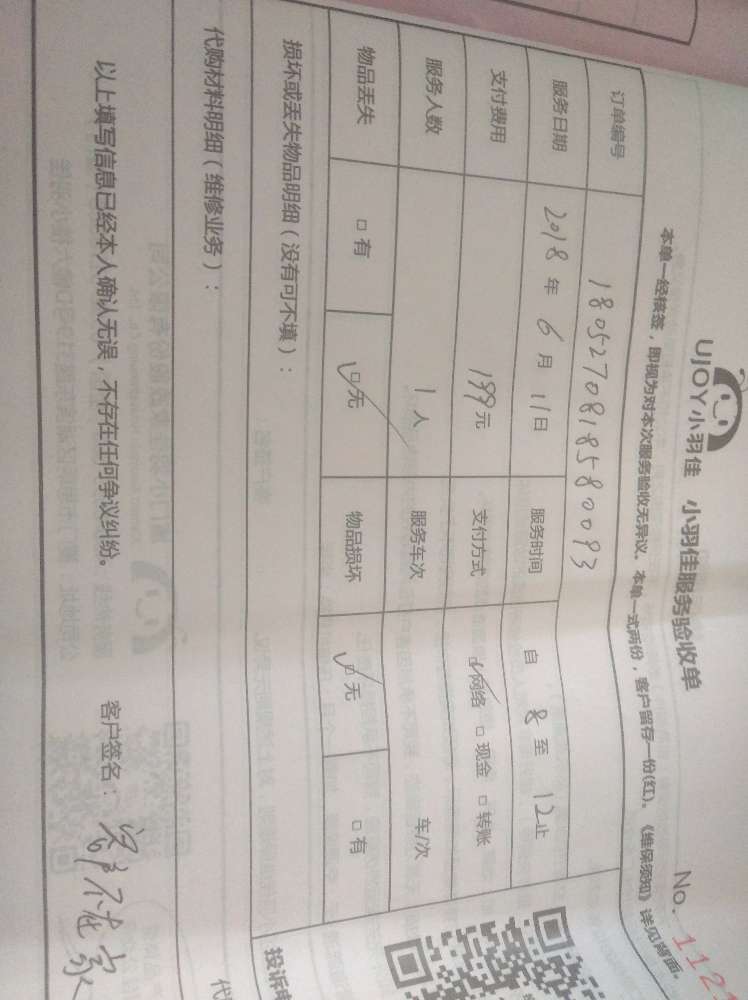 UJOY小羽佳 小羽佳服务验收单 No. 112
本单一经核签，即视为对本次服务验收无异议。本单一式两份，客户留存一份(红)。《维保须知》详见背面。
订单编号 180527081858 0093
服务日期 2018 年 6 月 11 日 服务时间 自 8 至 12 止
支付费用 199 元 支付方式 ☑网络 □现金 □转账
服务人数 1 人 服务车次 车/次
物品丢失 □有 ☑无 物品损坏 ☑无 □有
损坏或丢失物品明细（没有可不填）： 投诉
代购材料明细（维修业务）： 代
以上填写信息已经本人确认无误，不存在任何争议纠纷。 客户签名：客户不在家